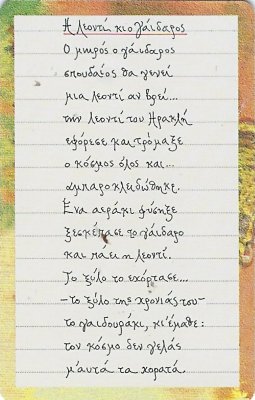 Η λεοντή κι ο γάιδαρος
Ο μικρός ο γάιδαρος
σπουδαίος θα γενεί
μια λεοντή αν βρεί...
την λεοντή του Ηρακλή
εφόρεσε και τρόμαξε
ο κόσμος όλος και...
αμπαροκλειδώθηκε.
Ένα αεράκι φύσηξε
ξεσκέπασε το γάιδαρο
και πάει η λεοντή.
Το ξύλο το εχόρτασε...
-το ξύλο της χρονιάς του-
το γαϊδουράκι, κι έμαθε:
τον κόσμο δεν γελάς
μ'αυτά τα χορατά.